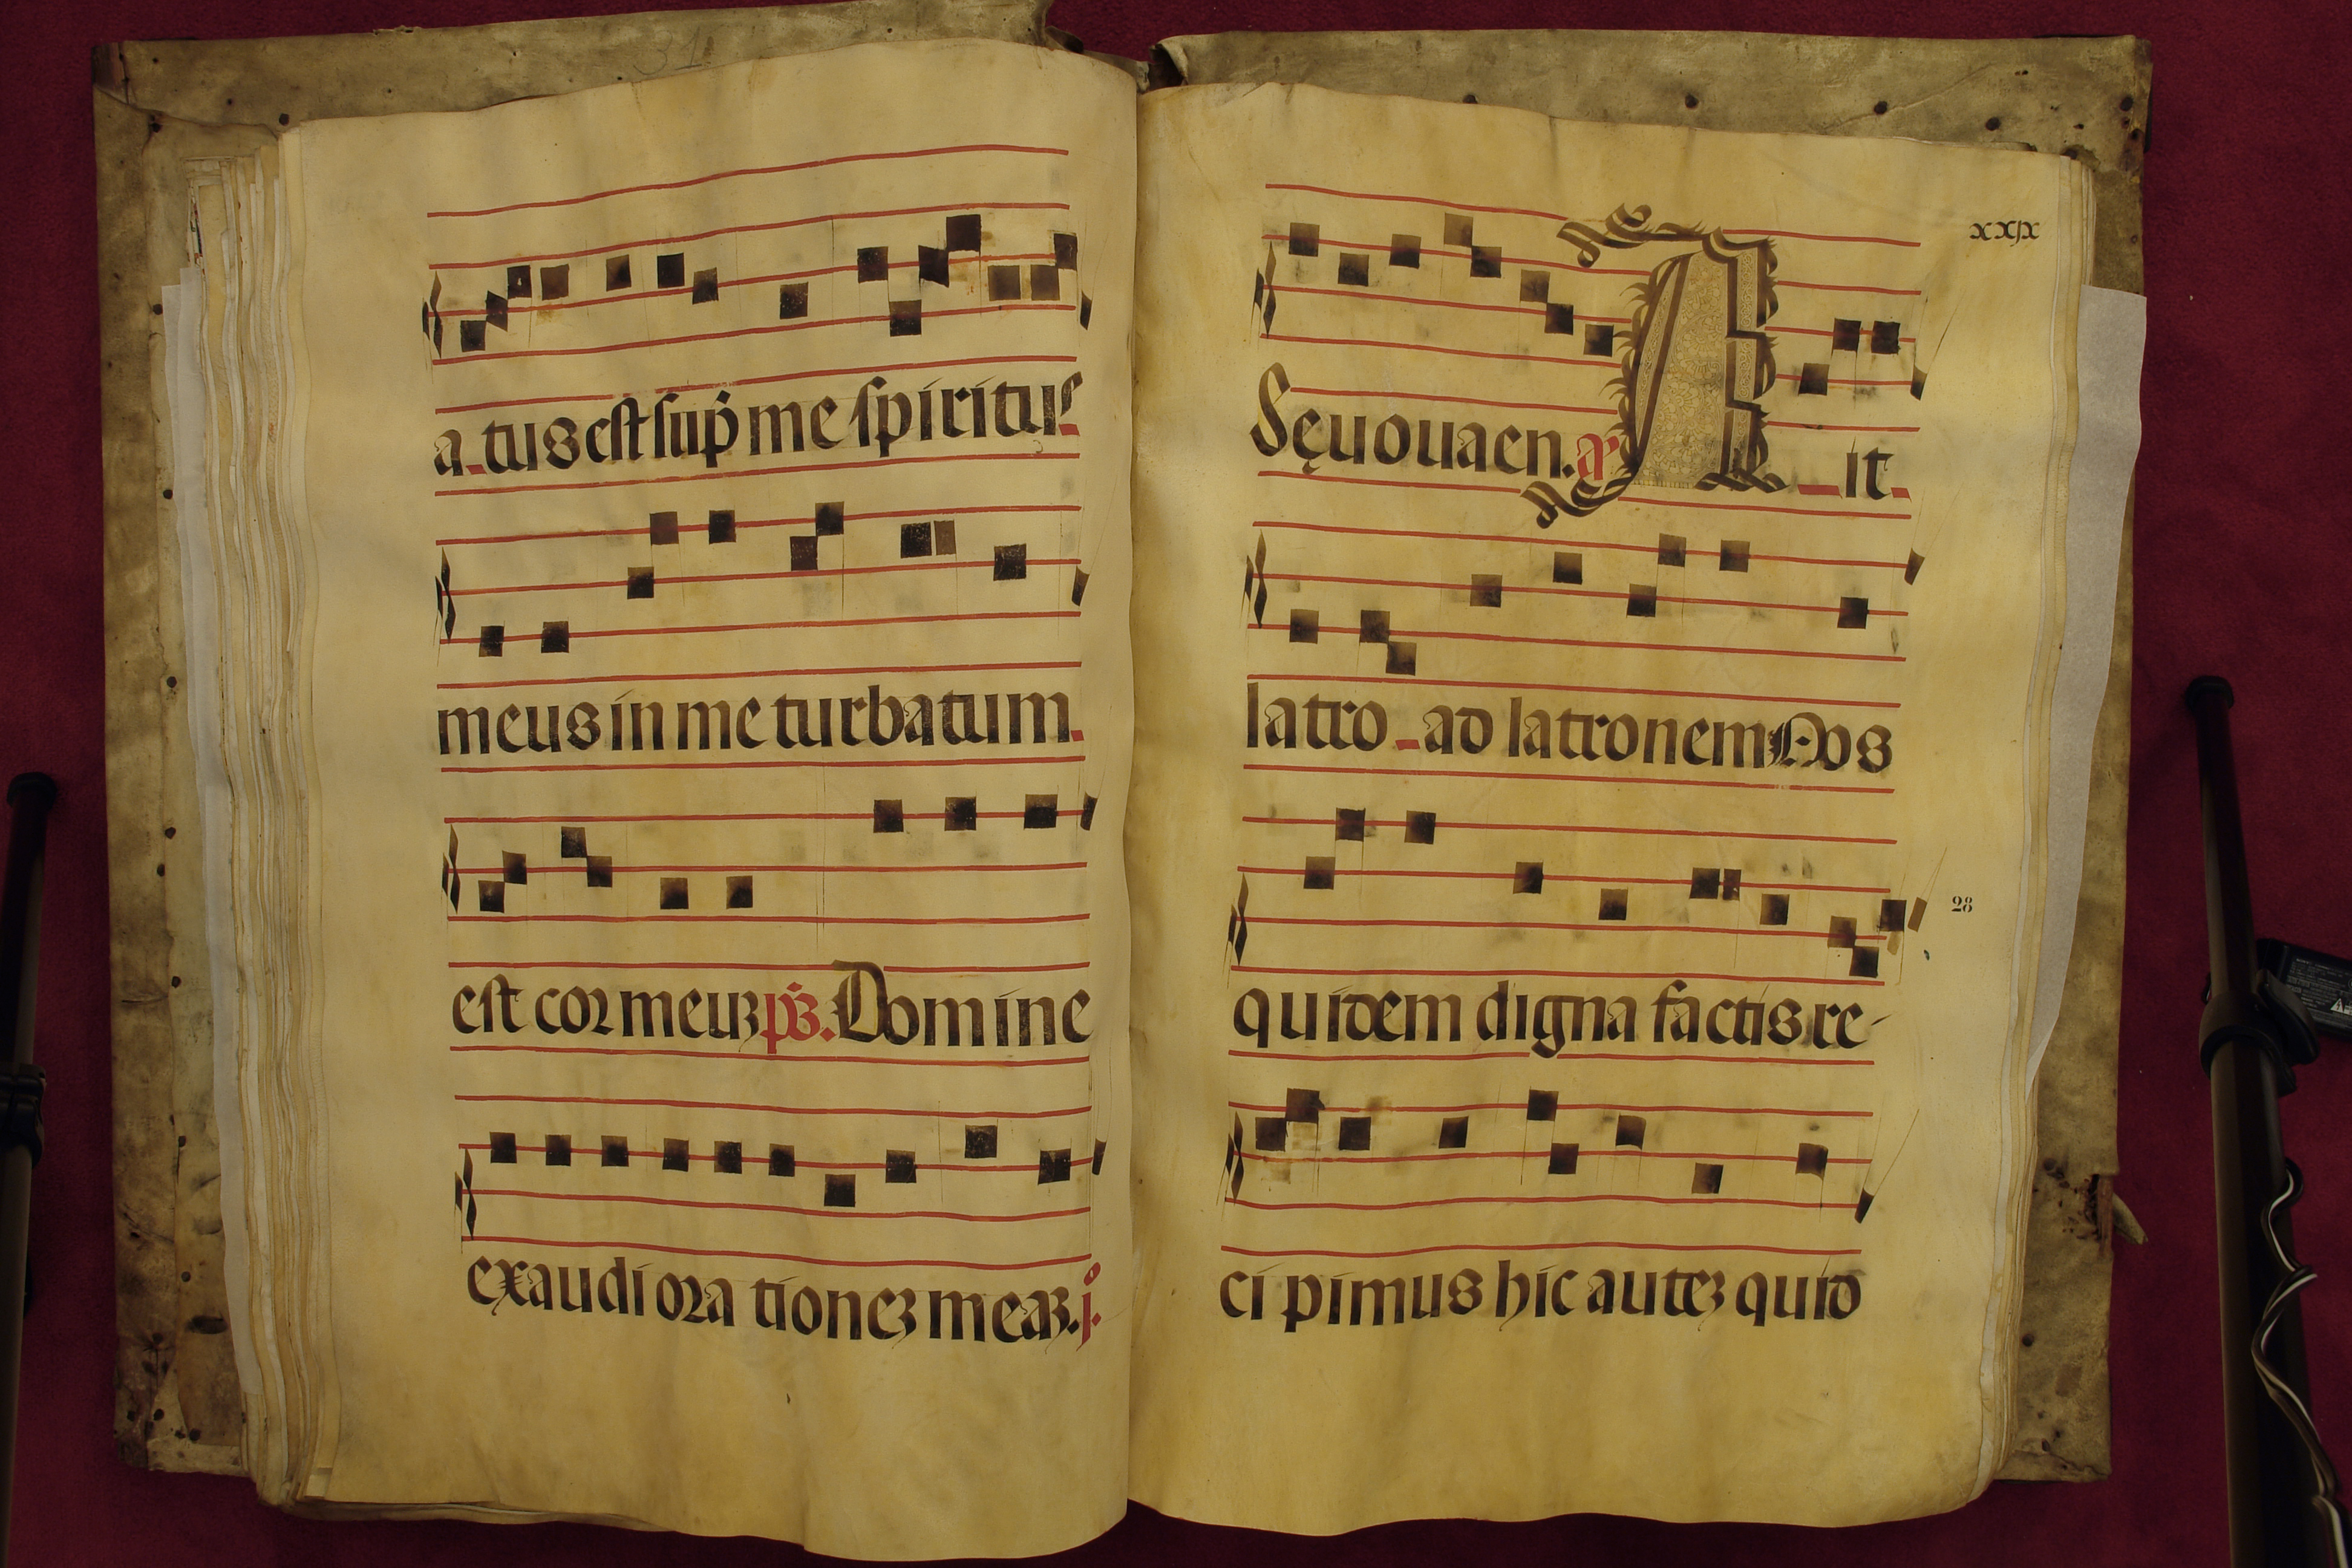 31
a tus est sup̄ me spiritus
meus in me turbatum
est cor meuʒ p̄s. Domine
exaudi ora tioneʒ meaʒ. j.
xxjx
Sęuouaen. a͞ A it
latro ad latronem Nos
quidem digna factis re-
28
ci pimus hic auteʒ quid